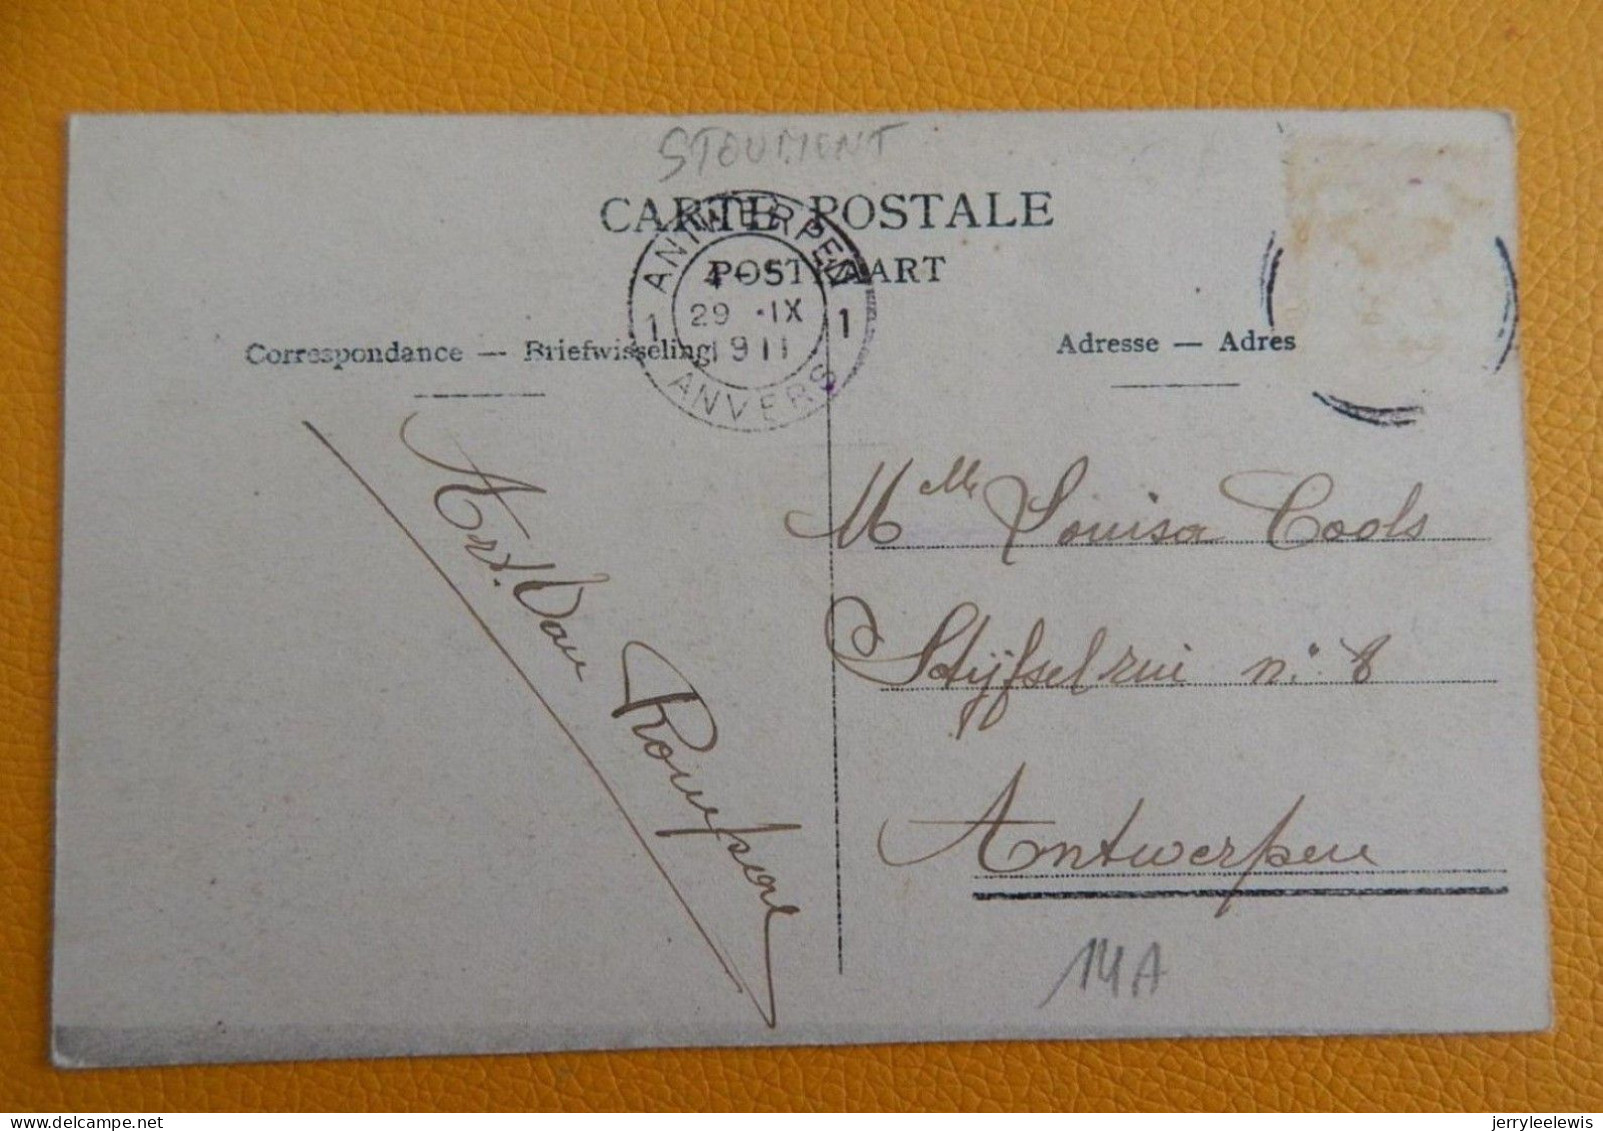 STOUMONT
CARTE POSTALE
POSTKAART
ANTWERPEN
4-5
29 ·IX
1911
1 1
ANVERS
Correspondance — Briefwisseling
Adresse — Adres
Art. Van
Mlle Louisa Cools
Stijfselrui n: 8
Antwerpen
14A
www.delcampe.net
jerryleelewis